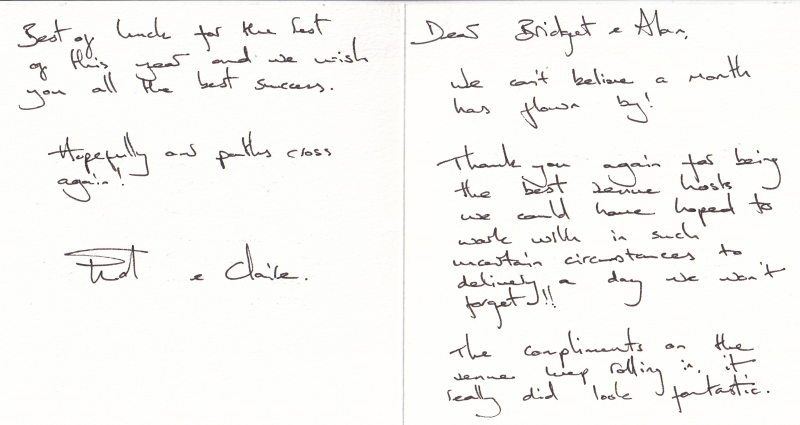 Dear Bridget & Alan,
We can't believe a month
has flown by!
Thank you again for being
the best venue hosts
we could have hoped to
work with in such
uncertain circumstances to
delivery a day we won't
forget!!!
The compliments on the
venue keep rolling in, it
really did look fantastic.
Best of luck for the rest
of this year and we wish
you all the best success.
Hopefully our paths cross
again!
& Claire.